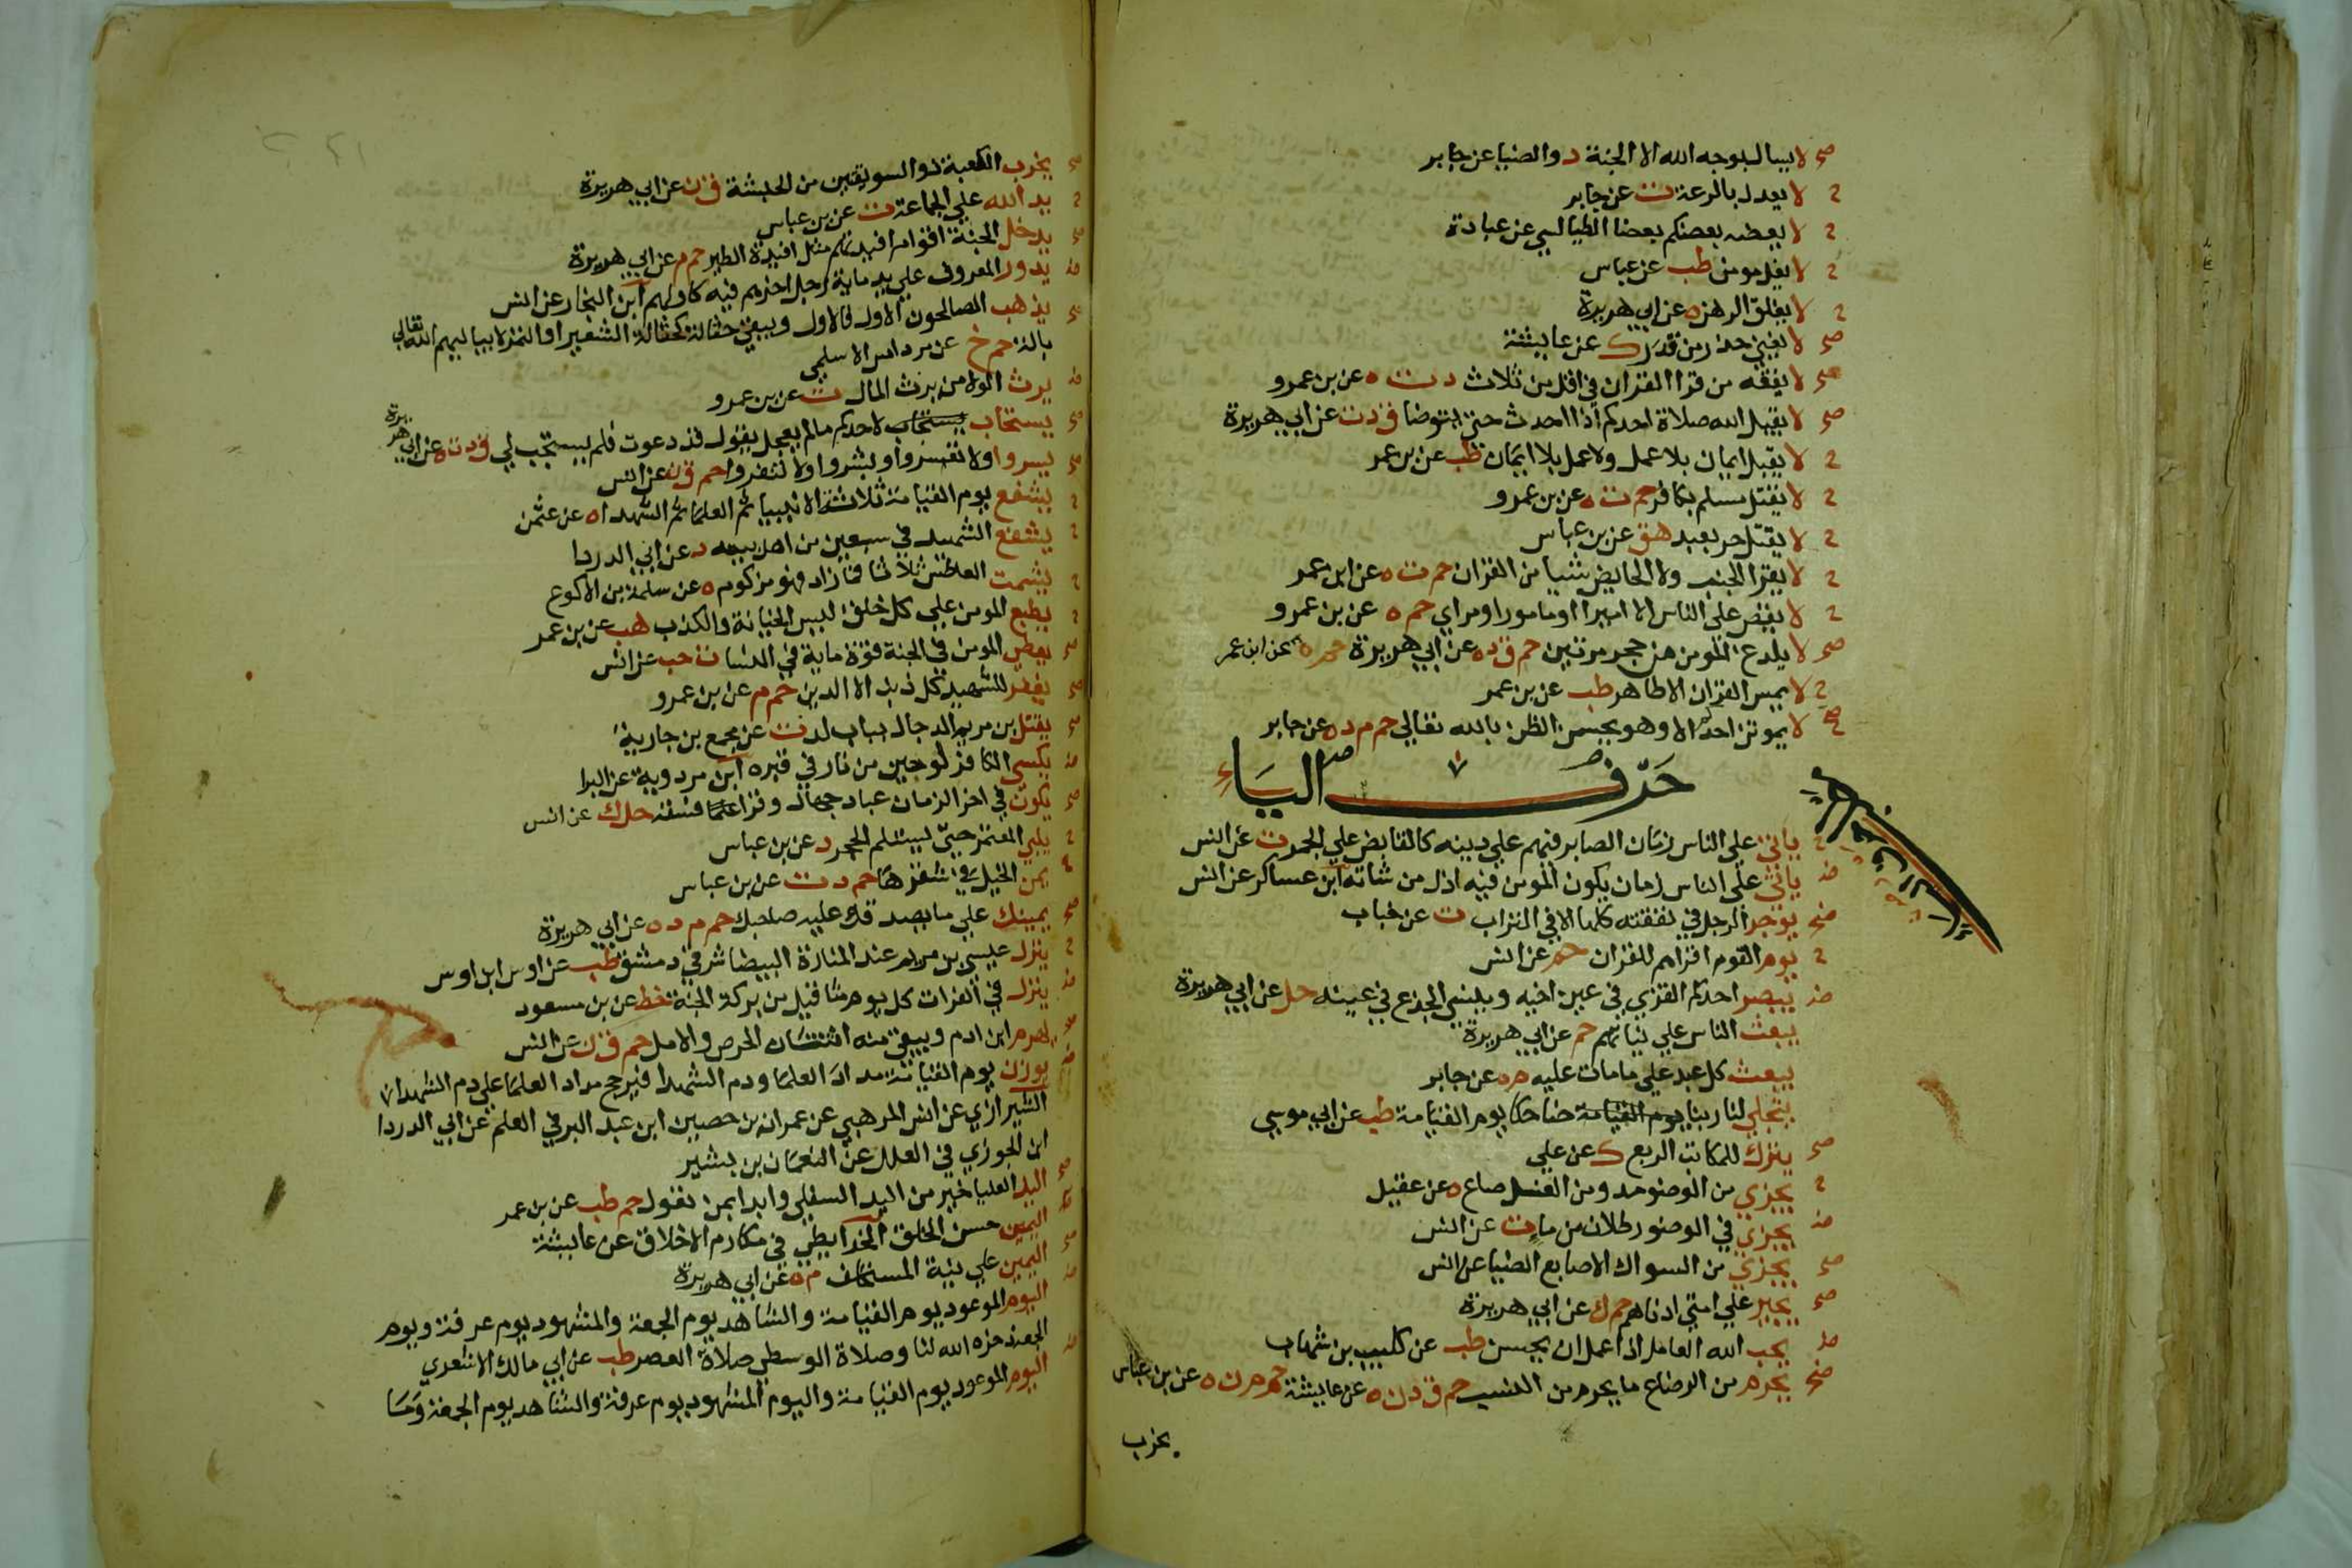 صح لا يسال بوجه الله الا الجنة د والضيا عن جابر
ح لا يعدل بالرعة ت عن جابر
ح لا يعضه بعضكم بعضا الطيالسي عن عبادة
ح لا يغل مومن طب عن عباس
ح لا يغلق الرهن ه عن ابي هريرة
صح لا يغني حذر من قدر ك عن عايشة
صح لا يفقه من قرا القران في اقل من ثلاث د ت ه عن بن عمرو
صح لا يقبل الله صلاة احدكم اذا احدث حتى يتوضا ق د ت عن ابي هريرة
ح لا يقبل ايمان بلا عمل ولا عمل بلا ايمان طب عن بن عمر
ح لا يقتل مسلم بكافر حم ت ه عن بن عمرو
ح لا يقتل حر بعبد هق عن بن عباس
ح لا يقرا الجنب ولا الحايض شيا من القران حم ت ه عن ابن عمر
ح لا يقص على الناس الا امير او مامور او مراي حم ه عن بن عمرو
صح لا يلدغ المومن من جحر مرتين حم ق د ه عن ابي هريرة حم ه عن ابن عمر
ح لا يمس القران الا طاهر طب عن بن عمر
صح لا يموتن احد الا وهو يحسن الظن بالله تعالي حم م د ه عن جابر
حرف الياء
ح ياتي علي الناس زمان الصابر فيهم علي دينه كالقابض علي الجمر ت عن انس
ض ياتي علي الناس زمان يكون المومن فيه اذل من شاته ابن عساكر عن انس
صح يوجر الرجل في نفقته كلها الا في التراب ت عن خباب
ح يوم القوم اقراهم للقران حم عن انس
ض يبصر احدكم القذي في عين اخيه وينسي الجذع في عينه حل عن ابي هريرة
يبعث الناس علي نياتهم حم عن ابي هريرة
يبعث كل عبد علي ما مات عليه م ه عن جابر
يتجلي لنا ربنا يوم القيامة ضاحكا يوم القيامة طب عن ابي موسي
صح يترك للمكاتب الربع ك عن علي
ح يجزي من الوضو مد ومن الغسل صاع ه عن عقيل
ض يجزي في الوضو رطلان من ما ت عن انس
صح يجزي من السواك الاصابع الضيا عن انس
صح يجير علي امتي ادناهم حم ك عن ابي هريرة
ض يحب الله العامل اذا عمل ان يحسن طب عن كليب بن شهاب
صح يحرم من الرضاع ما يحرم من النسب حم ق د ن ه عن عايشة حم م ن ه عن بن عباس
يخرب
صح يخرب الكعبة ذو السويقتين من الحبشة ق ن عن ابي هريرة
ح يد الله علي الجماعة ت عن بن عباس
صح يدخل الجنة اقوام افيدتهم مثل افيدة الطير حم م عن ابي هريرة
ض يدور المعروف علي يد ماية رجل اخرهم فيه كاولهم ابن النجار عن انس
صح يذهب الصالحون الاول فالاول ويبقي حفالة كحفالة الشعير او التمر لا يباليهم الله تعالي
بالة حم خ عن مرداس الاسلمي
ض يرث الولا من يرث المال ت عن بن عمرو
صح يستجاب يستجاب لاحدكم ما لم يعجل يقول قد دعوت فلم يستجب لي ق د ت ه عن ابي هريرة
صح يسروا ولا تعسروا وبشروا ولا تنفروا حم ق ن عن انس
ح يشفع يوم القيامة ثلاثة الانبيا ثم العلما ثم الشهدا ه عن عثمن
ح يشفع الشهيد في سبعين من اهل بيته د عن ابي الدردا
ح يشمت العاطس ثلاثا فما زاد فهو مزكوم ه عن سلمة بن الاكوع
ح يطبع المومن علي كل خلق ليس الخيانة والكذب هب عن بن عمر
صح يعطي المومن في الجنة قوة ماية في النسا ت حب عن انس
صح يغفر للشهيد كل ذنب الا الدين حم م عن بن عمرو
صح يقتل بن مريم الدجال بباب لد ت عن مجمع بن جارية
ض يكسي الكافر لوحين من نار في قبره ابن مردوية عن البرا
صح يكون في اخر الزمان عباد جهال وقرا فسقة حل ك عن انس
ح يلبي المعتمر حتي يستلم الحجر د عن بن عباس
يمن الخيل في شقرها حم د ت عن بن عباس
صح يمينك علي ما يصدقك عليه صاحبك حم م د ه عن ابي هريرة
ح ينزل عيسي بن مريم عند المنارة البيضا شرقي دمشق طب عن اوس ابن اوس
ض ينزل في الفرات كل يوم مثاقيل من بركة الجنة خط عن بن مسعود
يهرم ابن ادم ويبقي منه اثنتان الحرص والامل حم ق ن عن انس
ض يوزن يوم القيامة مداد العلما ودم الشهدا فيرجح مداد العلما علي دم الشهدا
الشيرازي عن انس المرهبي عن عمران بن حصين ابن عبد البر في العلم عن ابي الدردا
ابن الجوزي في العلل عن النعمان بن بشير
صح اليد العليا خير من اليد السفلي وابدا بمن تعول حم طب عن بن عمر
اليمن حسن الخلق الخرايطي في مكارم الاخلاق عن عايشة
صح اليمين علي نية المستحلف م ه عن ابي هريرة
ض اليوم الموعود يوم القيامة والشاهد يوم الجمعة والمشهود يوم عرفة ويوم
الجمعة ذخره الله لنا وصلاة الوسطي صلاة العصر طب عن ابي مالك الاشعري
ض اليوم الموعود يوم القيامة واليوم المشهود يوم عرفة والشاهد يوم الجمعة وما